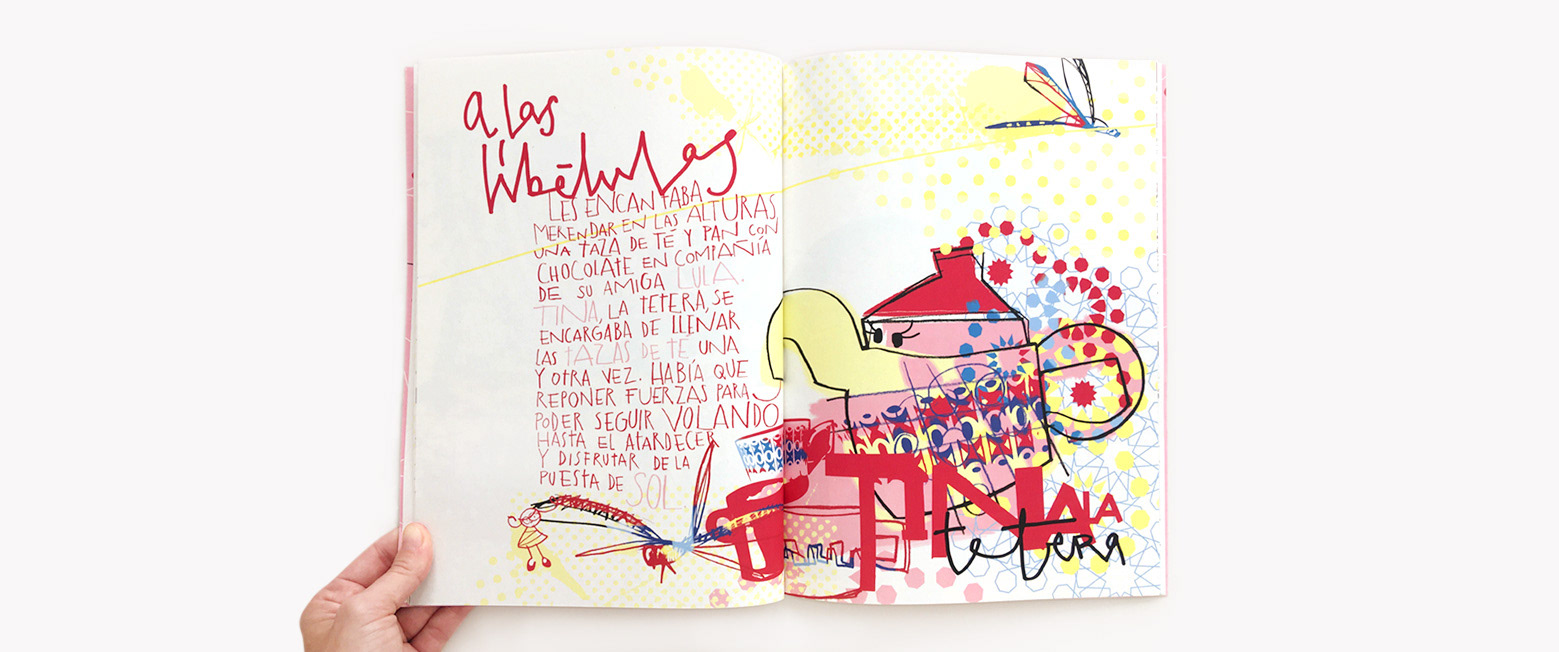 a las
libélulas
LES ENCANTABA
MERENDAR EN LAS ALTURAS
UNA TAZA DE TÉ Y PAN CON
CHOCOLATE EN COMPAÑÍA
DE SU AMIGA LULA.
TINA, LA TETERA, SE
ENCARGABA DE LLENAR
LAS TAZAS DE TÉ UNA
Y OTRA VEZ. HABÍA QUE
REPONER FUERZAS PARA
PODER SEGUIR VOLANDO
HASTA EL ATARDECER
Y DISFRUTAR DE LA
PUESTA DE SOL.
TINA LA
tetera